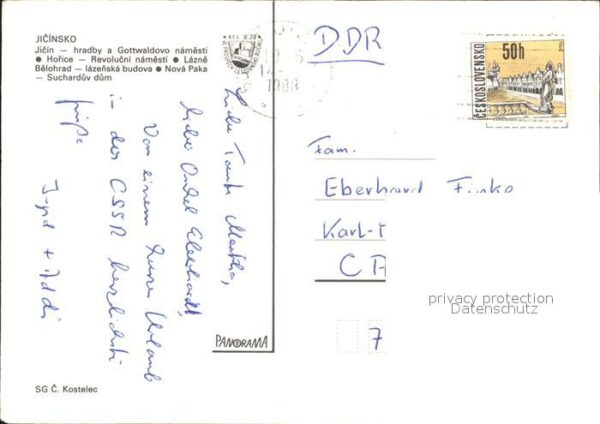 JIČÍNSKO
Jičín — hradby a Gottwaldovo náměstí
● Hořice — Revoluční náměstí ● Lázně
Bělohrad — lázeňská budova ● Nová Paka
— Suchardův dům
KČS 0,20
1988
DDR
50h
ČESKOSLOVENSKO
Liebe Tante Martha,
lieber Onkel Eberhardt,
Von einem kurzen Urlaub
in der CSSR herzlichste
Grüße
Fam.
Eberhard Finke
Karl-
C
7
privacy protection
Datenschutz
PANORAMA
SG Č. Kostelec